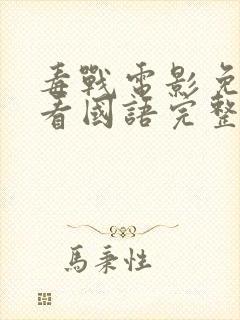 毒戰電影免
看國語完整
馬秉性